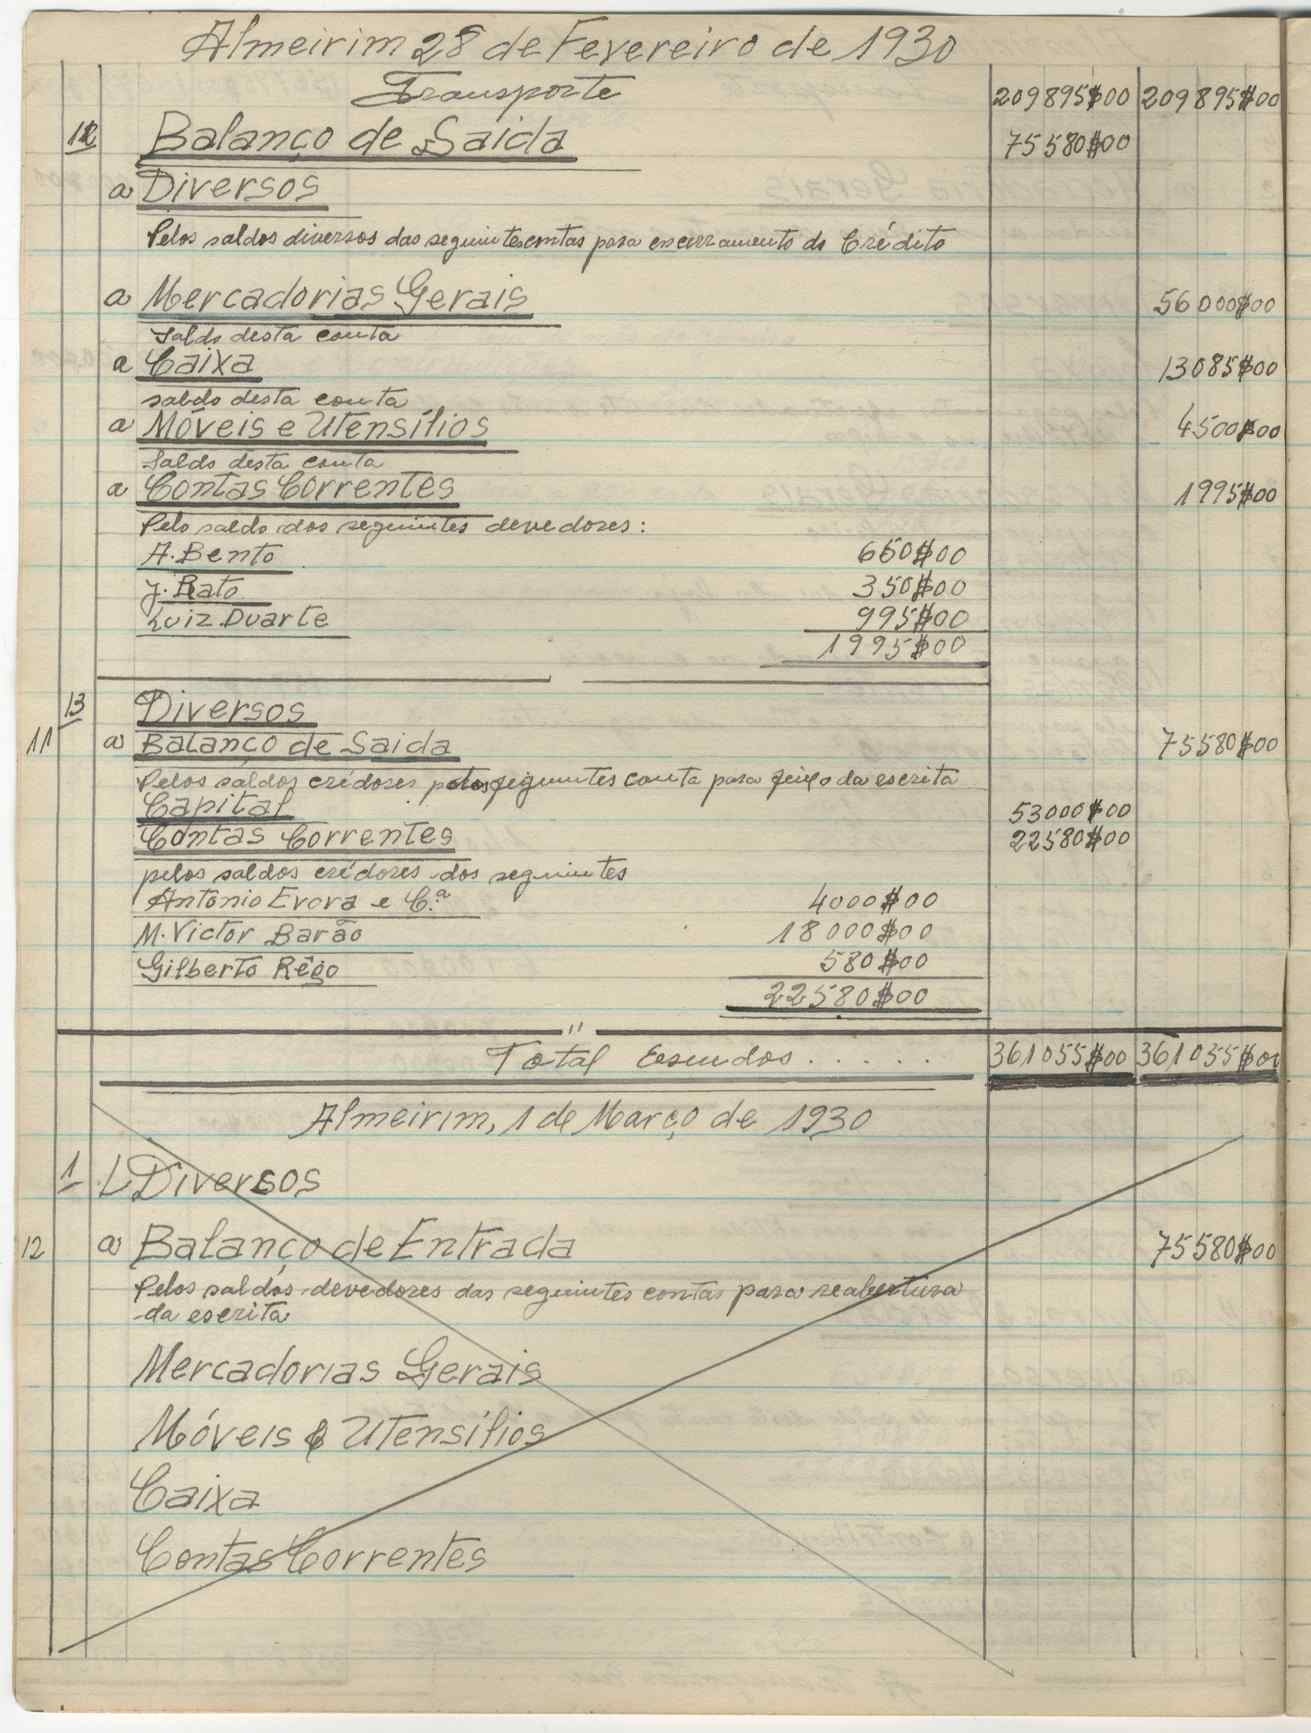 Almeirim 28 de Fevereiro de 1930
Transporte 209895$00 209895$00
12 Balanço de Saida 75580$00
a Diversos
Pelos saldos diversos das seguintes contas para encerramento do Crédito
a Mercadorias Gerais 56000$00
Saldo desta conta
a Caixa 13085$00
saldo desta conta
a Móveis e Utensílios 4500$00
Saldo desta conta
a Contas Correntes 1995$00
Pelo saldo dos seguintes devedores:
A. Bento 650$00
J. Rato 350$00
Luiz Duarte 995$00
1995$00
13 Diversos
11 a Balanço de Saida 75580$00
Pelos saldos crédores seguintes conta para feixo da escrita
Capital 53000$00
Contas Correntes 22580$00
pelos saldos crédores dos seguintes
Antonio Evora e C.ª 4000$00
M. Victor Barão 18000$00
Gilberto Rêgo 580$00
22580$00
"
Total Escudos...... 361055$00 361055$00
Almeirim, 1 de Março de 1930
1 Diversos
12 a Balanço de Entrada 75580$00
Pelos saldos devedores das seguintes contas para reabertura
da escrita
Mercadorias Gerais
Móveis & Utensílios
Caixa
Contas Correntes